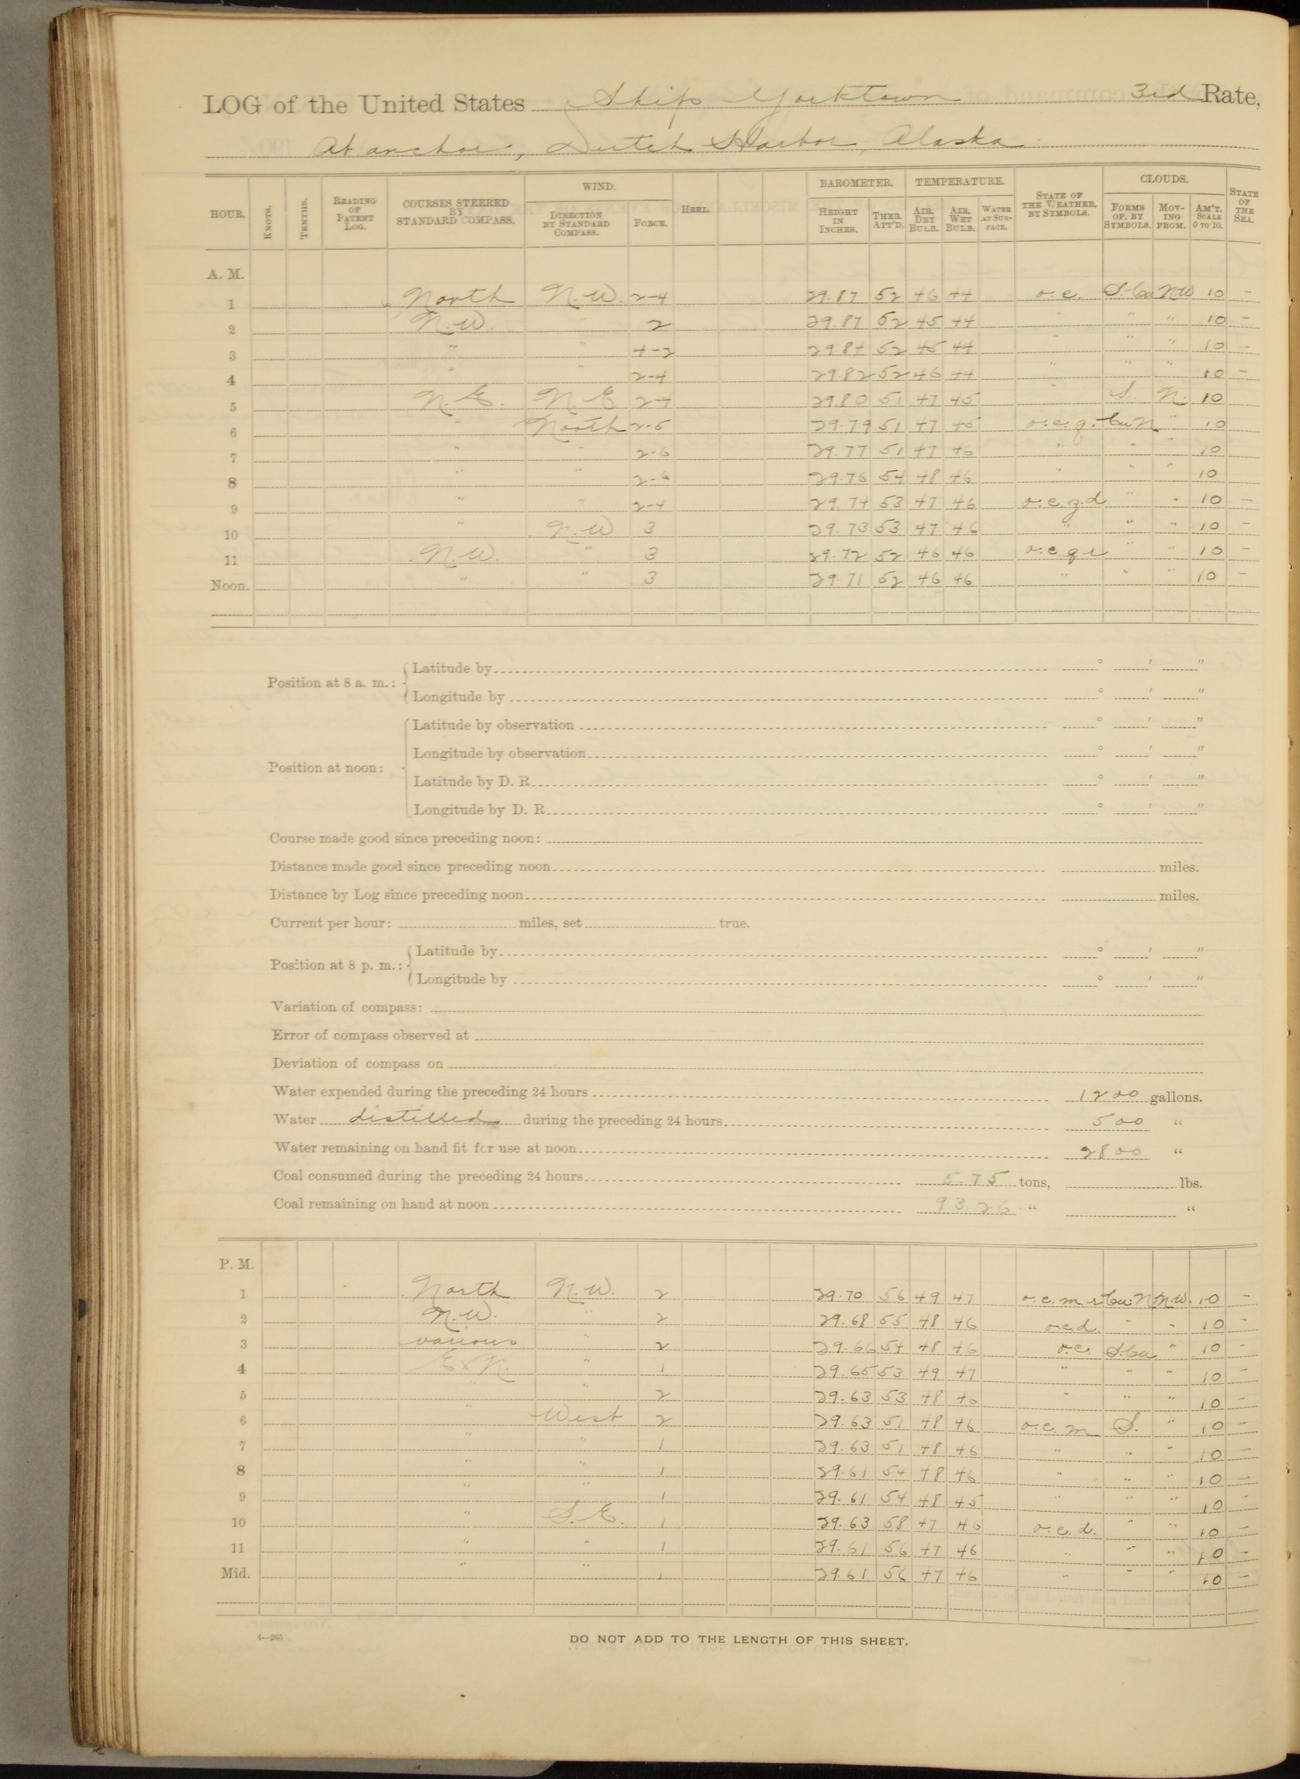 LOG of the United States Ship Yorktown 3rd Rate,
At anchor, Dutch Harbor, Alaska.
HOUR. KNOTS. TENTHS. READING OF PATENT LOG. COURSES STEERED BY STANDARD COMPASS. WIND. DIRECTION BY STANDARD COMPASS. FORCE. HEEL. BAROMETER. HEIGHT IN INCHES. THER. ATT'D. TEMPERATURE. AIR, DRY BULB. AIR, WET BULB. WATER AT SURFACE. STATE OF THE WEATHER, BY SYMBOLS. CLOUDS. FORMS OF, BY SYMBOLS. MOVING FROM. AM'T. SCALE 0 TO 10. STATE OF THE SEA.
A. M.
1 North N.W. 2-4 29.87 52 46 44 o.c. S.Cu N.W 10 -
2 N.W. " 2 29.87 52 45 44 " " " 10 -
3 " " 4-2 29.84 52 45 44 " " " 10 -
4 " " 2-4 29.82 52 46 44 " " " 10 -
5 N.E. N.E 2-4 29.80 51 47 45 " S. N. 10
6 " North 2-5 29.79 51 47 45 o.c.q. Cu N " 10
7 " " 2-6 29.77 51 47 46 " " " 10
8 " " 2-6 29.76 54 48 46 " " " 10
9 " " 2-4 29.74 53 47 46 o.c.q.d " " 10 -
10 " N.W 3 29.73 53 47 46 " " " 10 -
11 N.W. " 3 29.72 52 46 46 o.c.q.r " " 10 -
Noon. " " 3 29.71 52 46 46 " " " 10 -
Position at 8 a. m.: Latitude by ° ′ ″
Longitude by ° ′ ″
Position at noon: Latitude by observation ° ′ ″
Longitude by observation ° ′ ″
Latitude by D. R. ° ′ ″
Longitude by D. R. ° ′ ″
Course made good since preceding noon:
Distance made good since preceding noon miles.
Distance by Log since preceding noon miles.
Current per hour: miles, set true.
Position at 8 p. m.: Latitude by ° ′ ″
Longitude by ° ′ ″
Variation of compass:
Error of compass observed at
Deviation of compass on
Water expended during the preceding 24 hours 1200 gallons.
Water distilled during the preceding 24 hours 500 "
Water remaining on hand fit for use at noon 2800 "
Coal consumed during the preceding 24 hours 5.75 tons, lbs.
Coal remaining on hand at noon 93.26 " "
P. M.
1 North N.W. 2 29.70 56 49 47 o.c.m.r Cu N N.W. 10 -
2 N.W. " 2 29.68 55 48 46 o.c.d. " " 10 -
3 various " 2 29.66 54 48 46 o.c. S.Cu " 10 -
4 " 1 29.65 53 49 47 " " " 10 -
5 " " 2 29.63 53 48 46 " " " 10 -
6 " West 2 29.63 51 48 46 o.c.m S. " 10 -
7 " " 1 29.63 51 48 46 " " " 10 -
8 " " 1 29.61 54 48 46 " " " 10 -
9 " " 1 29.61 54 48 45 " " " 10 -
10 " S.E. 1 29.63 58 47 46 o.c.d. " " 10 -
11 " " 1 29.61 56 47 46 " " " 10 -
Mid. " " 1 29.61 56 47 46 " " " 10 -
4—265
DO NOT ADD TO THE LENGTH OF THIS SHEET.